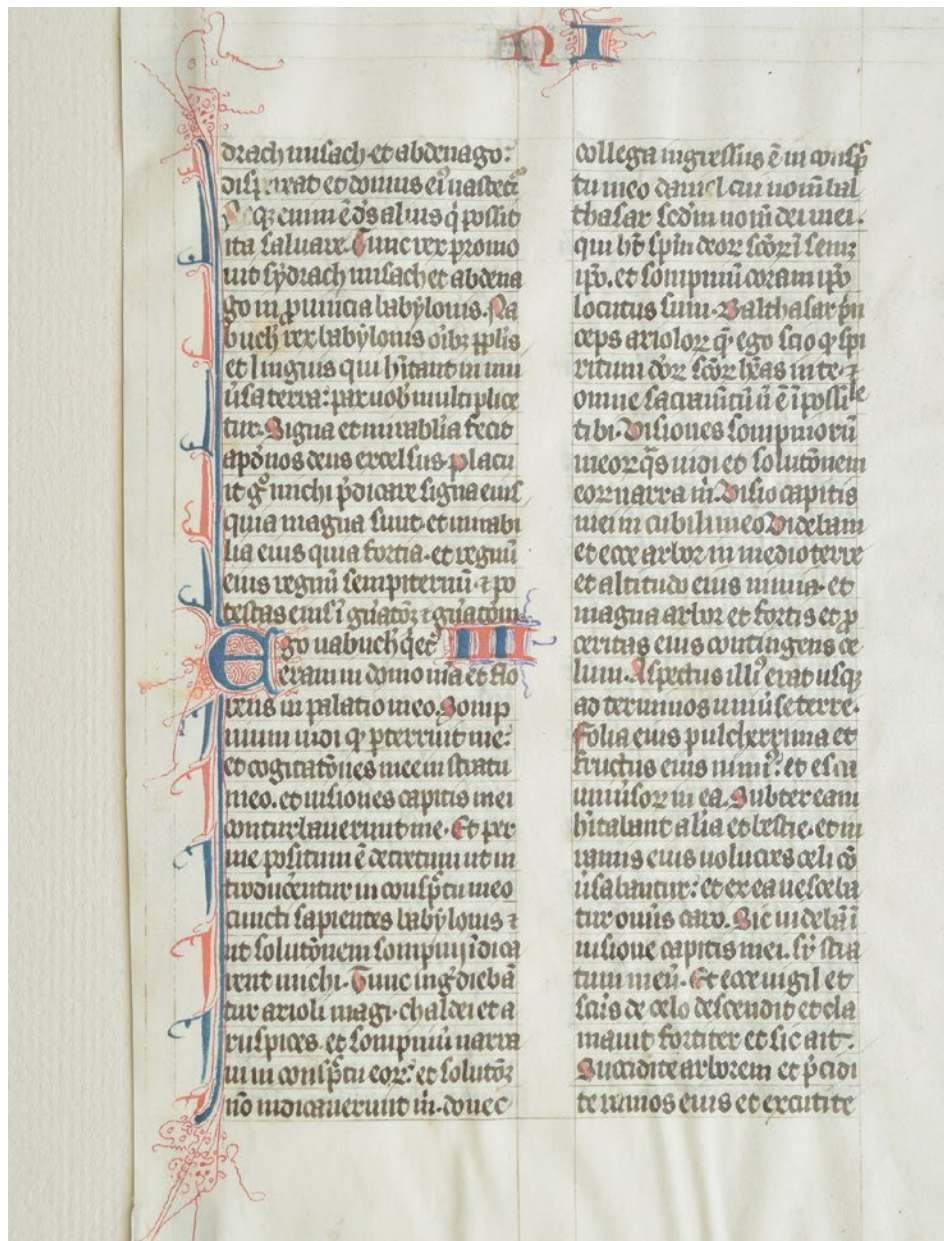 NI
drach misach et abdenago:
disp̱ereat et domus eiꝰ uastetr̄
Neqꝫ enim ē d̄s alius q̇ possit
ita saluare. Tunc rex promo
uit sydrach misach et abdena
go in ꝓuincia babylonis. Na
buch rex babylonis oībꝫ pp̄lis
et linguis qui hīt̄ant in uni
ūsa terra: pax uob̄ multiplice
tur. Signa et mirab̄lia fecit
apd̄ nos deus excelsus. placu
it gͦ michi p̄dicare signa eius
quia magna sunt. et mirabi
lia eius quia fortia. et regnū
eius regnū sempiternū. ⁊ po
testas eiuſ ī gn̄atōꝫ ⁊ gn̄atōnē
Ego nabuch q̇etꝰ IIII
eram in domo mea et flo
rens in palatio meo. Somp
nium uidi qͣ p̄terruit me:
et cogitatōnes mee in stratu
meo. et uisiones capitis mei
conturbauerunt me. Et per
me positum ē decretum ut in
troducentur in consp̄ctu meo
cuncti sapientes babylonis ⁊
ut solutōnem sompnij īdica
rent michi. Tunc ingͥdiebā
tur arioli magi. chaldei et a
ruspices. et sompniū narra
ui in consp̄ctu eoꝝ: et solutōꝫ
nō indicauerunt m̄. donec
collega ingressus ē in consp̄
tu meo daniel cui nom̄ bal
thasar sc̄dm nom̄ dei mei.
qui h̄t sp̄m deoꝝ sc̄oꝝ ī semꝫ
ip̄o. et sompniū coram ip̄o
locutus sum. Balthasar p̄n
ceps arioloꝝ qm̄ ego scio qͣ spi
ritum d̄oꝝ sc̄oꝝ h̄eas in te. ⁊
omne sacramtū n̄ ē īpossiˡᵉ
tibi. Visiones sompniorū
meoꝝ qͣs uidi et solutōnem
eoꝝ narra m̄. Visio capitis
mei in cubili meo Videbam
et ecce arbor in medio terre
et altitudo eius nimia. et
magna arbor et fortis et ꝓ
ceritas eius contingens ce
lum. Aspectus illiꝰ erat usqꝫ
ad terminos uniūse terre.
Folia eius pulcherrima et
fructus eius nimiꝰ: et esca
uniūsoꝝ in ea. Subter eam
hīt̄abant alia et bestie. et in
ramis eius uolucres celi cō
ūsabantur: et ex ea uesceba
tur omīs caro. Sic uidebā ī
uisione capitis mei. sr̄ stra
tum meū. Et ecce uigil et
sc̄us de celo descendit et cla
mauit fortiter et sic ait.
Succidite arborem et p̄cidi
te ramos eius et excutite